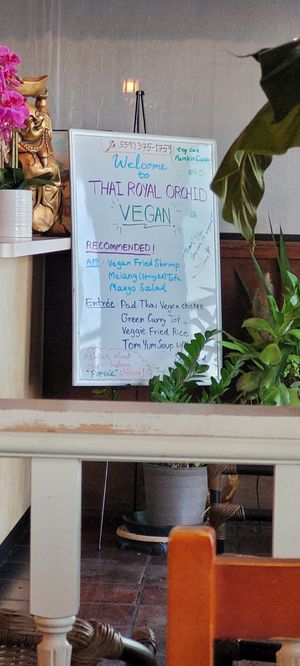 (559) 375-1759
Try our
Pumpkin Curry
Welcome
to
THAI ROYAL ORCHID
VEGAN
RECOMMENDED!
App: Vegan Fried Shrimp
Melang (Spicy) Tofu
Mango Salad
Entrée: Pad Thai Vegan Chicken
Green Curry Tof
Veggie Fried Rice
Tom Yum Soup
Ask us about
our
"Popsicle"